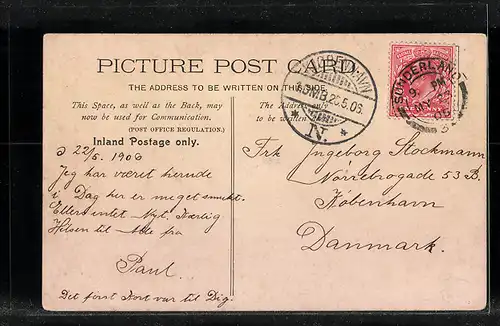 PICTURE POST CARD
THE ADDRESS TO BE WRITTEN ON THIS SIDE.
This Space, as well as the Back, may
now be used for Communication.
(POST OFFICE REGULATION.)
Inland Postage only.
The Address only
to be written
KJØBENHAVN
5.06
N.
SUNDERLAND
22/5. 1906
Jeg har været herude
i Dag her er meget smukt.
Ellers intet Nyt. Kærlig
Hilsen til Alle fra
Paul.
Det først Kort var til Dig.
Frk Ingeborg Stockmann
Nörrebrogade 53 B.
København
Danmark.